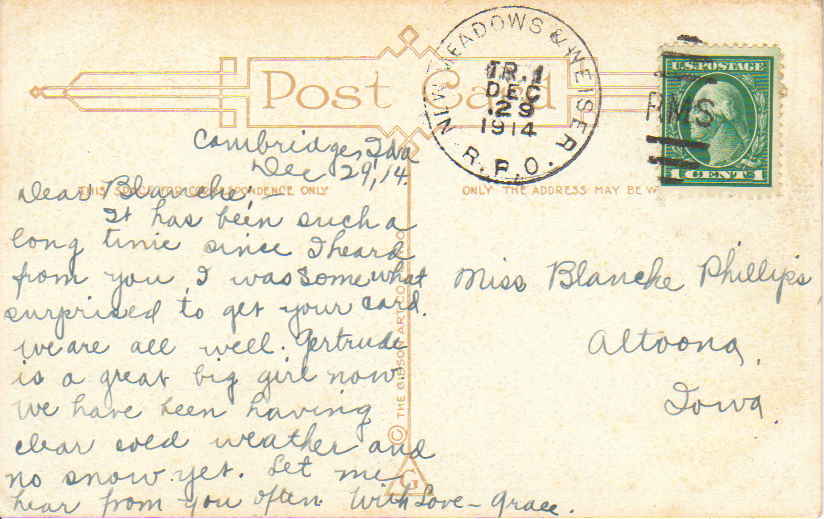 Post Card
NEW MEADOWS & WEISER
TR. 1
DEC
29
1914
R.P.O.
RMS
U.S. POSTAGE
1 CENT 1
THIS SPACE FOR CORRESPONDENCE ONLY
ONLY THE ADDRESS MAY BE
Cambridge, Ida
Dec 29, 14.
Dear Blanche; —
It has been such a
long time since I heard
from you, I was somewhat
surprised to get your card.
we are all well. Gertrude
is a great big girl now
We have been having
clear cold weather and
no snow yet. Let me
hear from you often. With Love – Grace.
Miss Blanche Phillips,
Altoona,
Iowa.
© THE GIBSON ART CO.
G